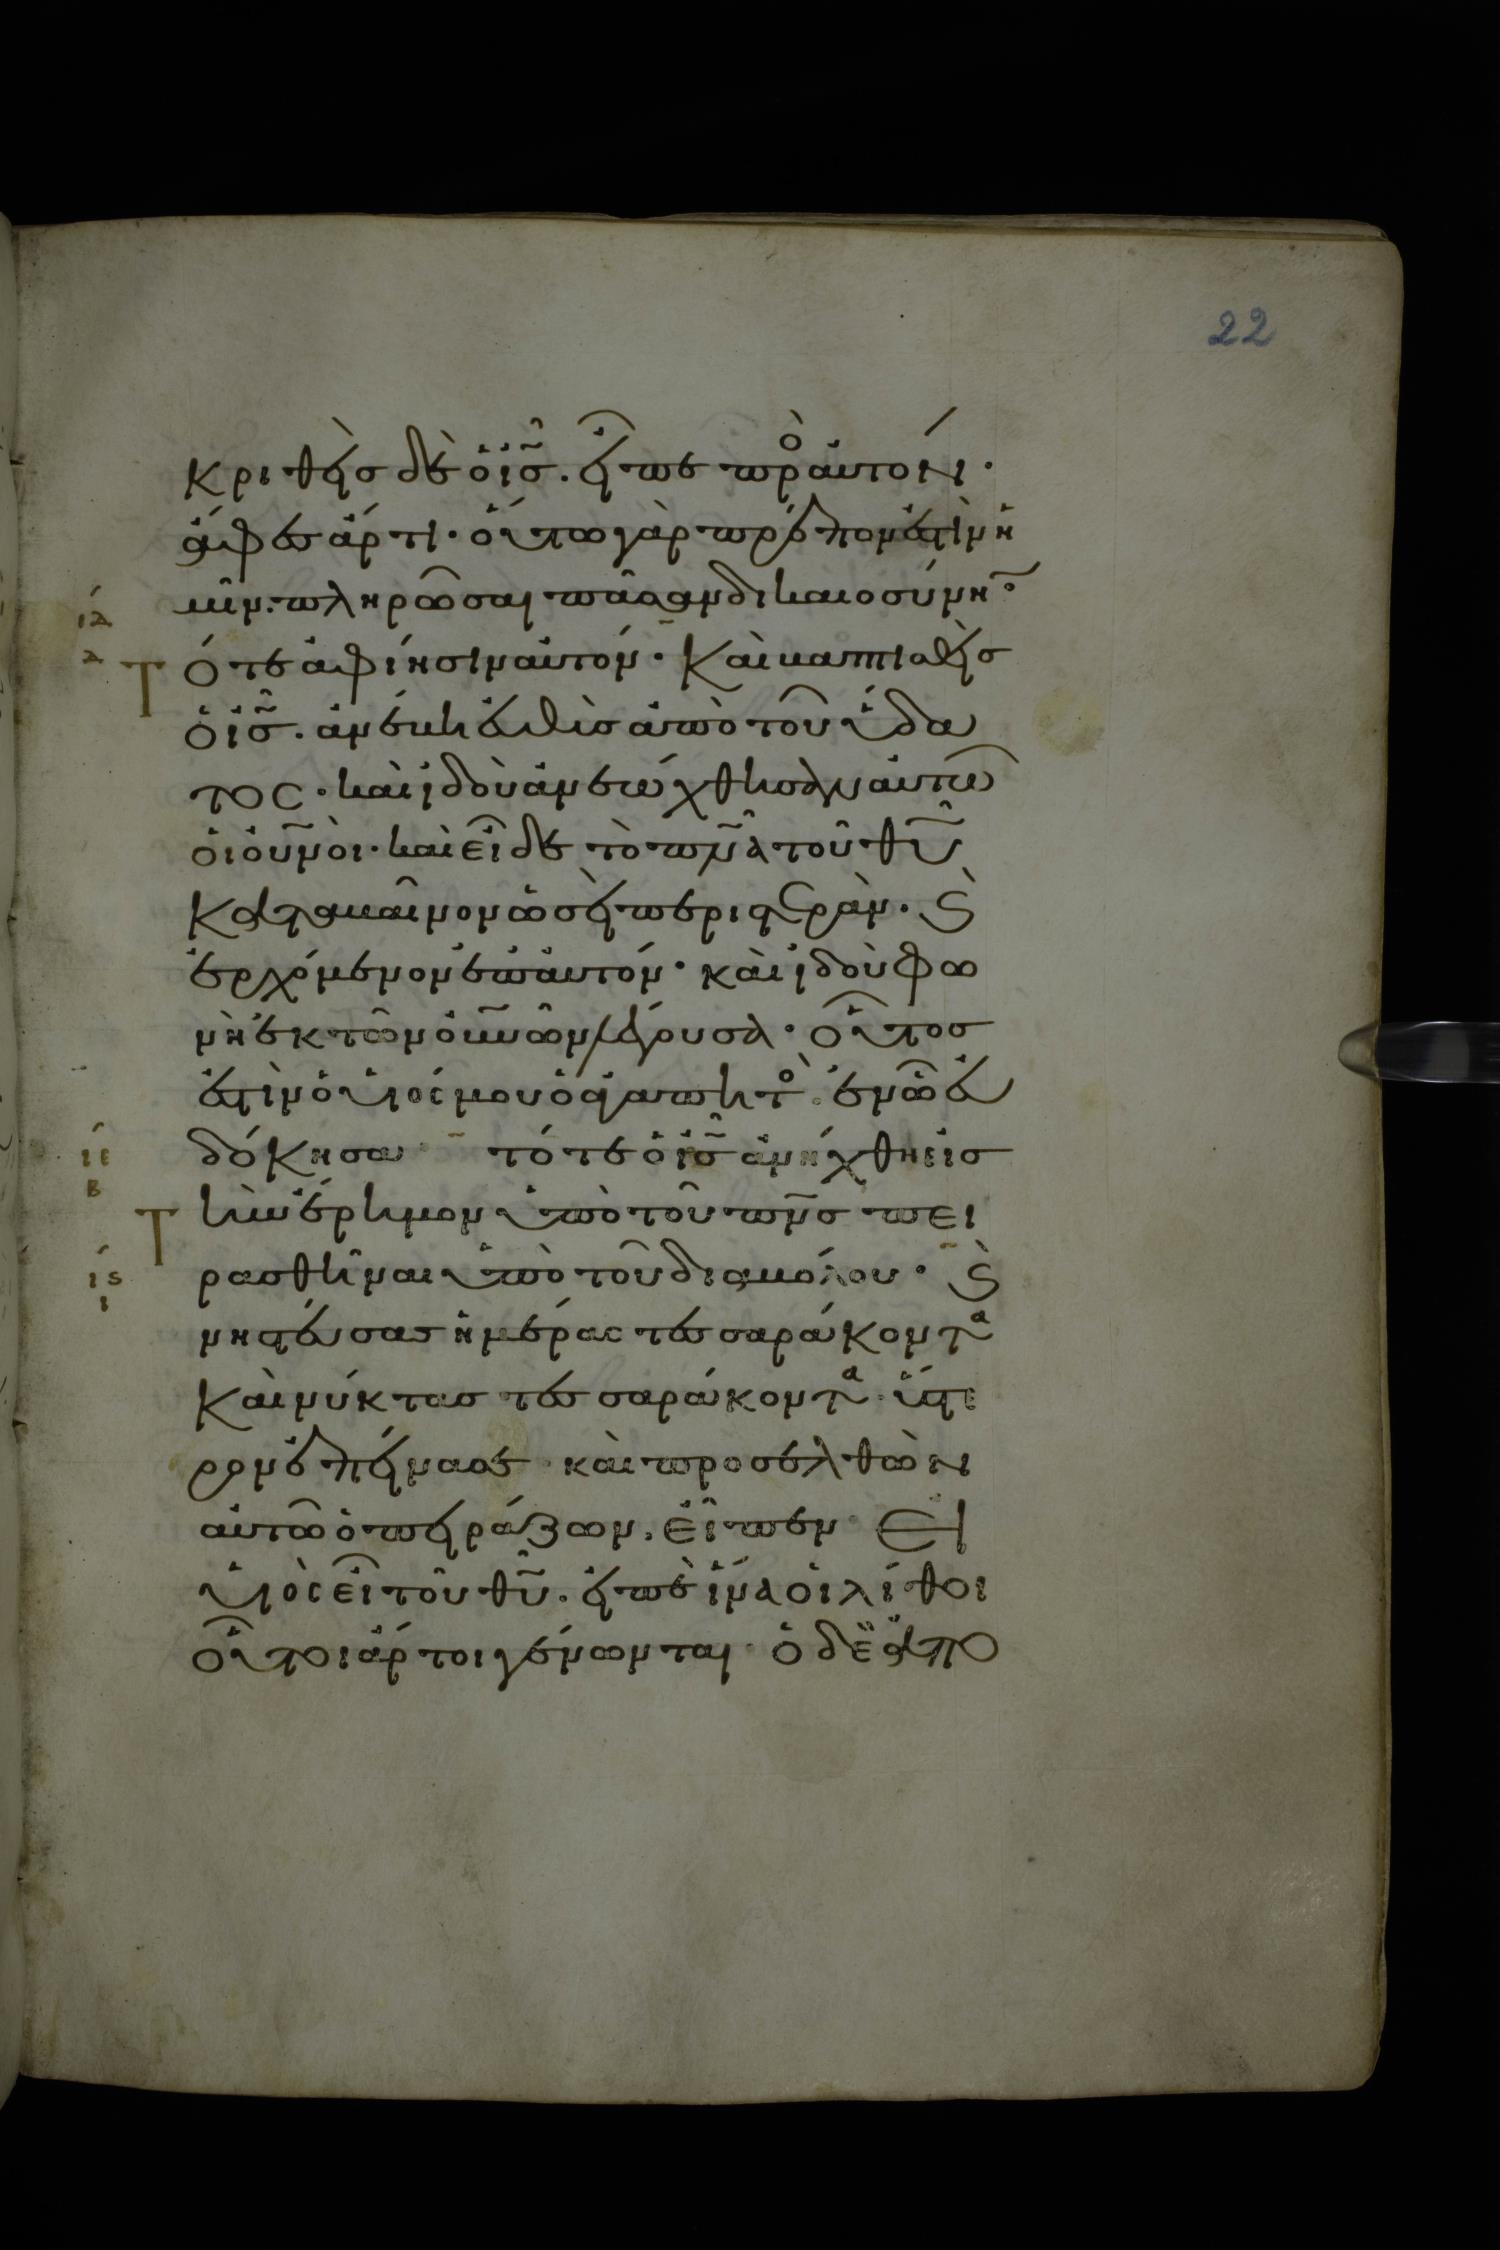 22
κριθεὶς δὲ ὁ ἰς̃. εἶπε πρὸ αὐτόν·
ἄφες ἄρτι· οὕτω γὰρ πρέπον ἐστὶν ἡ
μῖν. πληρῶσαι πᾶσαν δικαιοσύνη̃·
ιδ
δ
Τότε ἀφίησιν αὐτόν· Καὶ βαπτισθεὶς
ὁ ἰς̃. ἀνέβη εὐθὺς ἀπὸ τοῦ ὕδα
τος· καὶ ἰδοὺ ἀνεώχθησαν αὐτῶ
οἱ οὐνοὶ· καὶ εἶδε τὸ πν̃α τοῦ θυ̃
Καταβαῖνον ὡσεὶ περιστερὰν. ϗ
ἐρχόμενον ἐπ αὐτόν· καὶ ἰδοὺ φω
νὴ ἐκ τῶν οὐνῶν λέγουσα· οὗτος
ἐστὶν ὁ υἱός μου ὁ ἀγαπητὸ. ἐν ὧ εὐ
ιε
β
δόκησα τότε ὁ ἰς̃ ἀνήχθη εἰς
Τ
τὴν ἔρημον ὑπὸ τοῦ πν̃ς πει
ις
ι
ρασθῆναι ὑπὸ τοῦ διαβόλου· ϗ
νηστεύσας ἡμέρας τεσσαράκοντα
Καὶ νύκτας τεσσαράκοντα ὕστε
ρον ἐπείνασε καὶ προσελθὼν
αὐτῶ ὁ πειράζων, εἶπεν Εἰ
υἱὸς εἶ τοῦ θυ̃. εἰπὲ ἵνα οἱ λίθοι
οὗτοι ἄρτοι γένωνται ὁ δὲ ἀπο